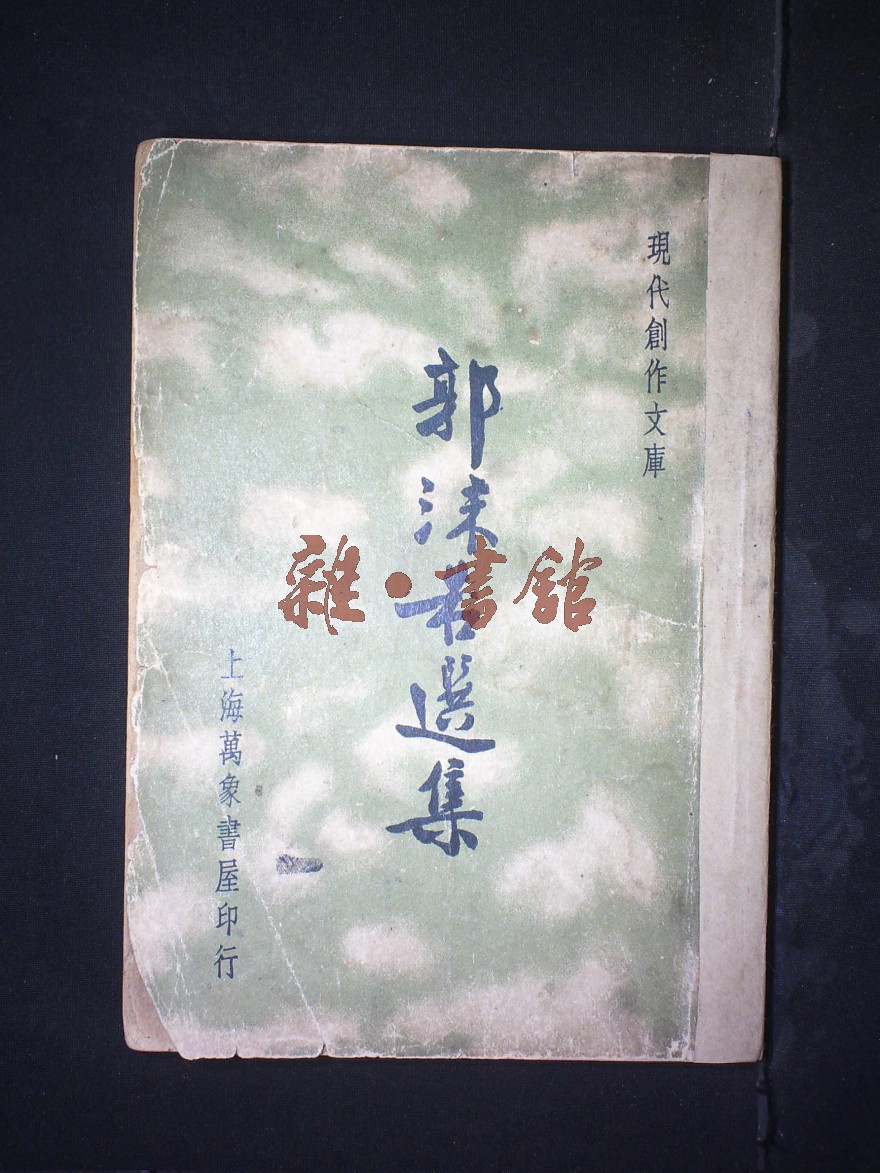 現代創作文庫
郭沫若選集
上海萬象書屋印行
雜·書館